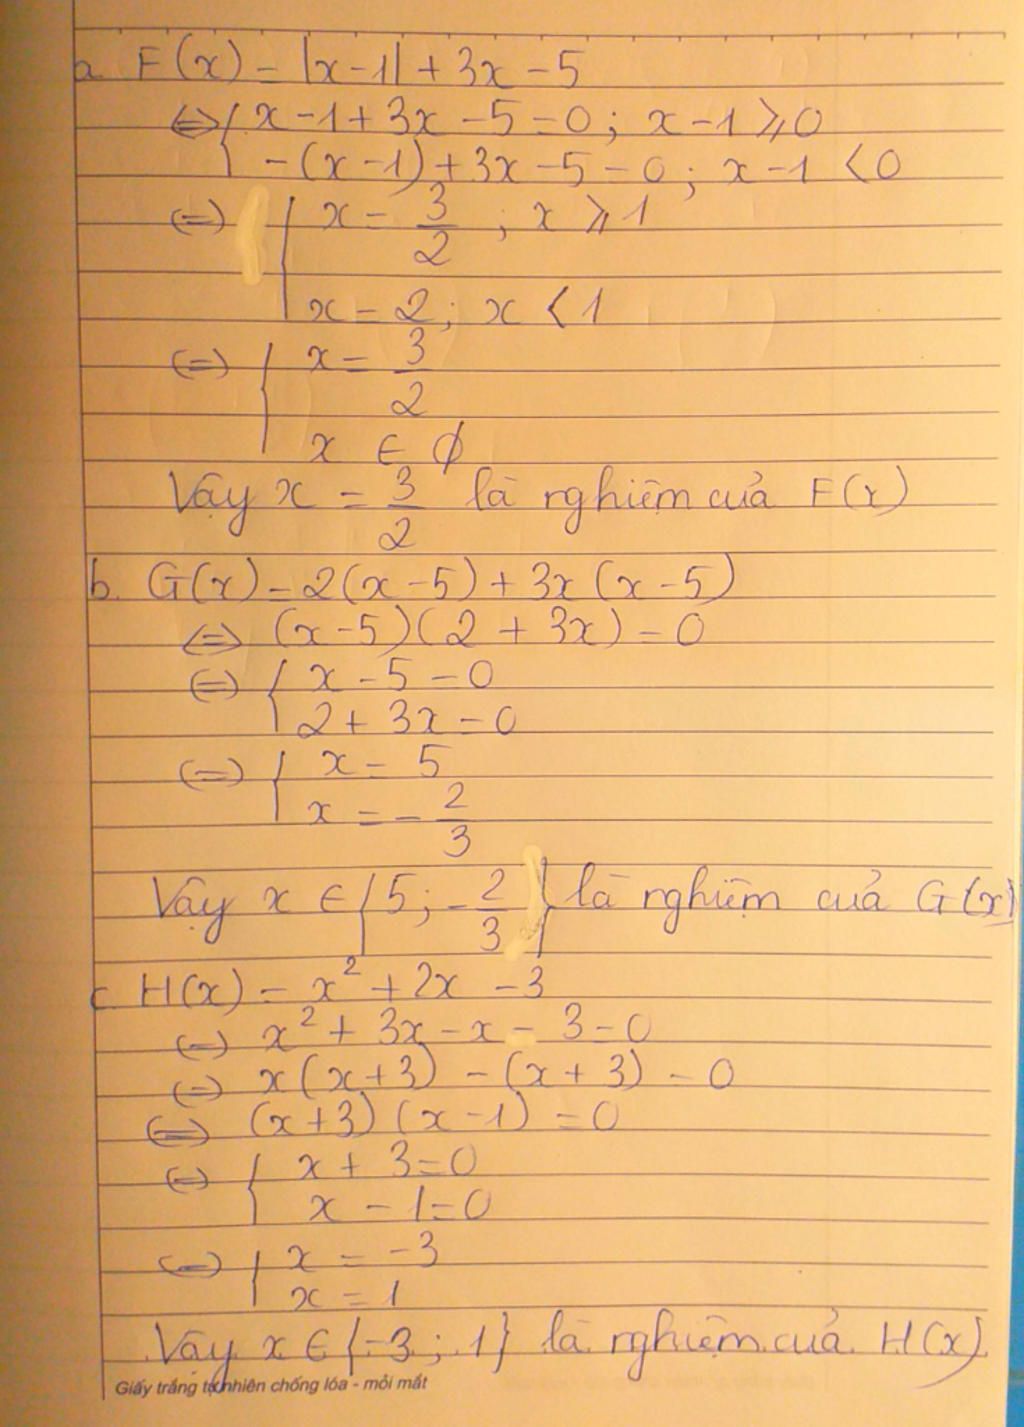 a. F(x) = |x-1| + 3x - 5
⇔ { x-1+3x-5=0; x-1 ⩾ 0
-(x-1)+3x-5=0; x-1 < 0
⇔ { x = 3/2 ; x ⩾ 1
x = 2; x < 1
⇔ { x = 3/2
x ∈ ∅
Vậy x = 3/2 là nghiệm của F(x)
b. G(x) = 2(x-5) + 3x(x-5)
⇔ (x-5)(2 + 3x) = 0
⇔ { x - 5 = 0
2 + 3x = 0
⇔ { x = 5
x = - 2/3
Vậy x ∈ {5; - 2/3} là nghiệm của G(x)
c. H(x) = x² + 2x - 3
⇔ x² + 3x - x - 3 = 0
⇔ x(x+3) - (x+3) = 0
⇔ (x+3)(x-1) = 0
⇔ { x + 3 = 0
x - 1 = 0
⇔ { x = -3
x = 1
Vậy x ∈ {-3; 1} là nghiệm của H(x)
Giấy trắng tự nhiên chống lóa - mỏi mắt